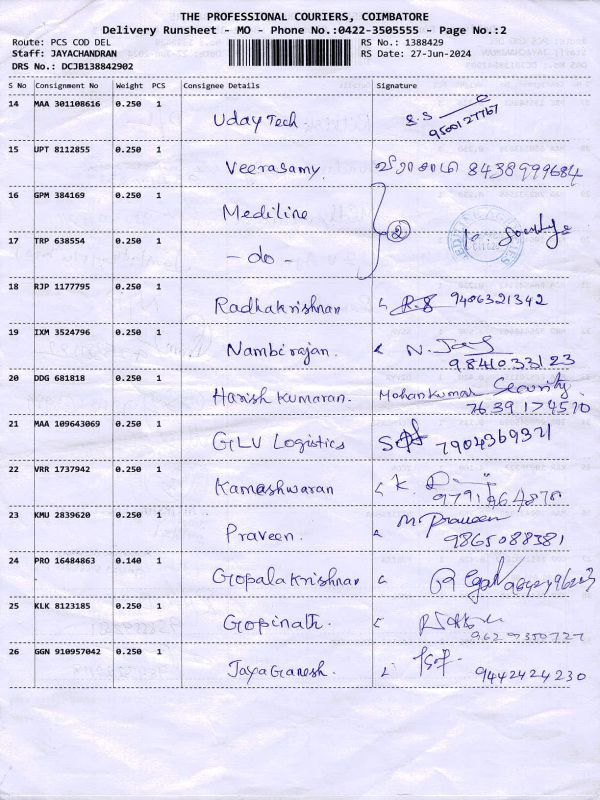 THE PROFESSIONAL COURIERS, COIMBATORE
Delivery Runsheet - MO - Phone No.:0422-3505555 - Page No.:2
Route: PCS COD DEL RS No.: 1388429
Staff: JAYACHANDRAN RS Date: 27-Jun-2024
DRS No.: DCJB138842902
S No Consignment No Weight PCS Consignee Details Signature
14 MAA 301108616 0.250 1 Uday Tech. S.S
9500127767
15 UPT 8112855 0.250 1 Veerasamy. 8438999684
16 GPM 384169 0.250 1 Mediline
2
17 TRP 638554 0.250 1 - do -
18 RJP 1177795 0.250 1 Radhakrishnan 9486321342
19 IXM 3524796 0.250 1 Nambirajan. N. Jay
9841033123
20 DDG 681818 0.250 1 Harish Kumaran. Mohankumar Security
7639174510
21 MAA 109643069 0.250 1 GLV Logistics 7904369321
22 VRR 1737942 0.250 1 Kamashwaran K.
23 KMU 2839620 0.250 1 Praveen. M. Praveen
9865088381
24 PRO 16484863 0.140 1 Gopalakrishnan
25 KLK 8123185 0.250 1 Gopinath.
26 GGN 910957042 0.250 1 JayaGanesh. 9442424230